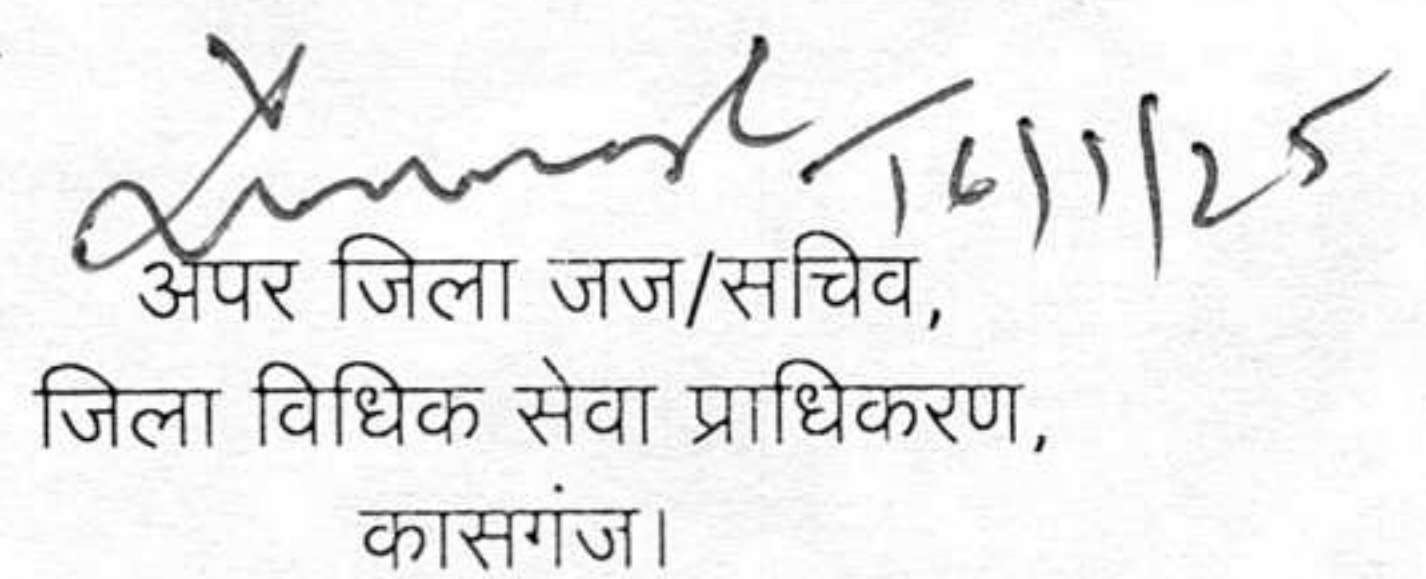 16/1/25
अपर जिला जज/सचिव,
जिला विधिक सेवा प्राधिकरण,
कासगंज।